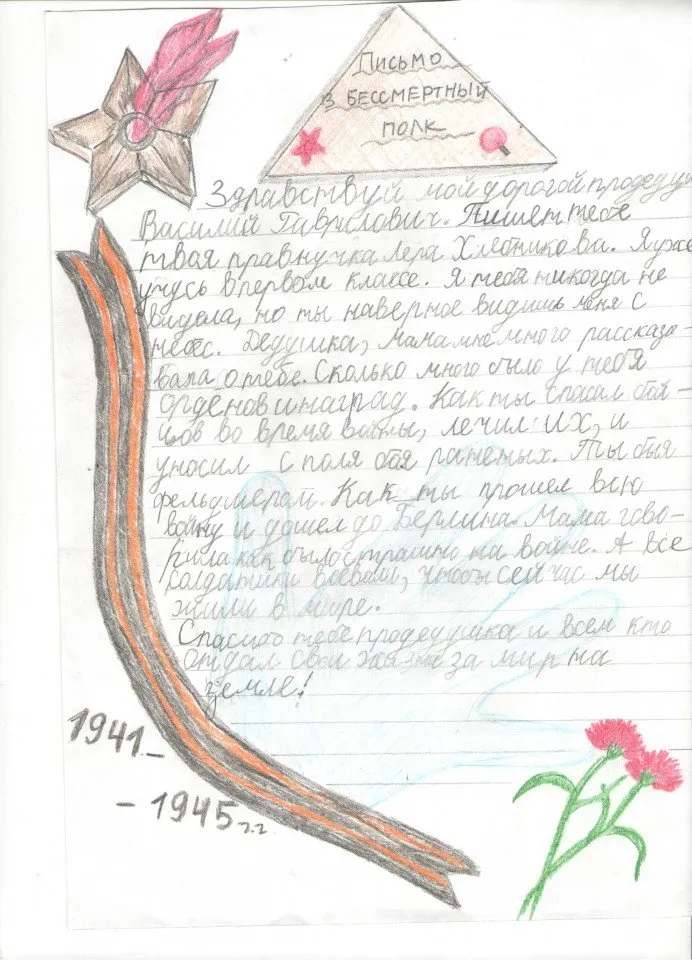 Письмо
в бессмертный
полк
Здравствуй мой дорогой продедуш
Василий Гаврилович. Пишет тебе
твоя правнучка Лера Хлебникова. Я уже
учусь в первом классе. Я тебя никогда не
видела, но ты наверное видишь меня с
небес. Дедушка, мама мне много рассказы-
вала о тебе. Сколько много было у тебя
орденов и наград. Как ты спасал бой-
цов во время войны, лечил их, и
уносил с поля боя раненых. Ты был
фельдшером. Как ты прошел всю
войну и дошел до Берлина. Мама гово-
рила как было страшно на войне. А все
солдатики воевали, чтобы сейчас мы
жили в мире.
Спасибо тебе продедушка и всем кто
отдал свои жизни за мир на
земле!
1941-
-1945г.г